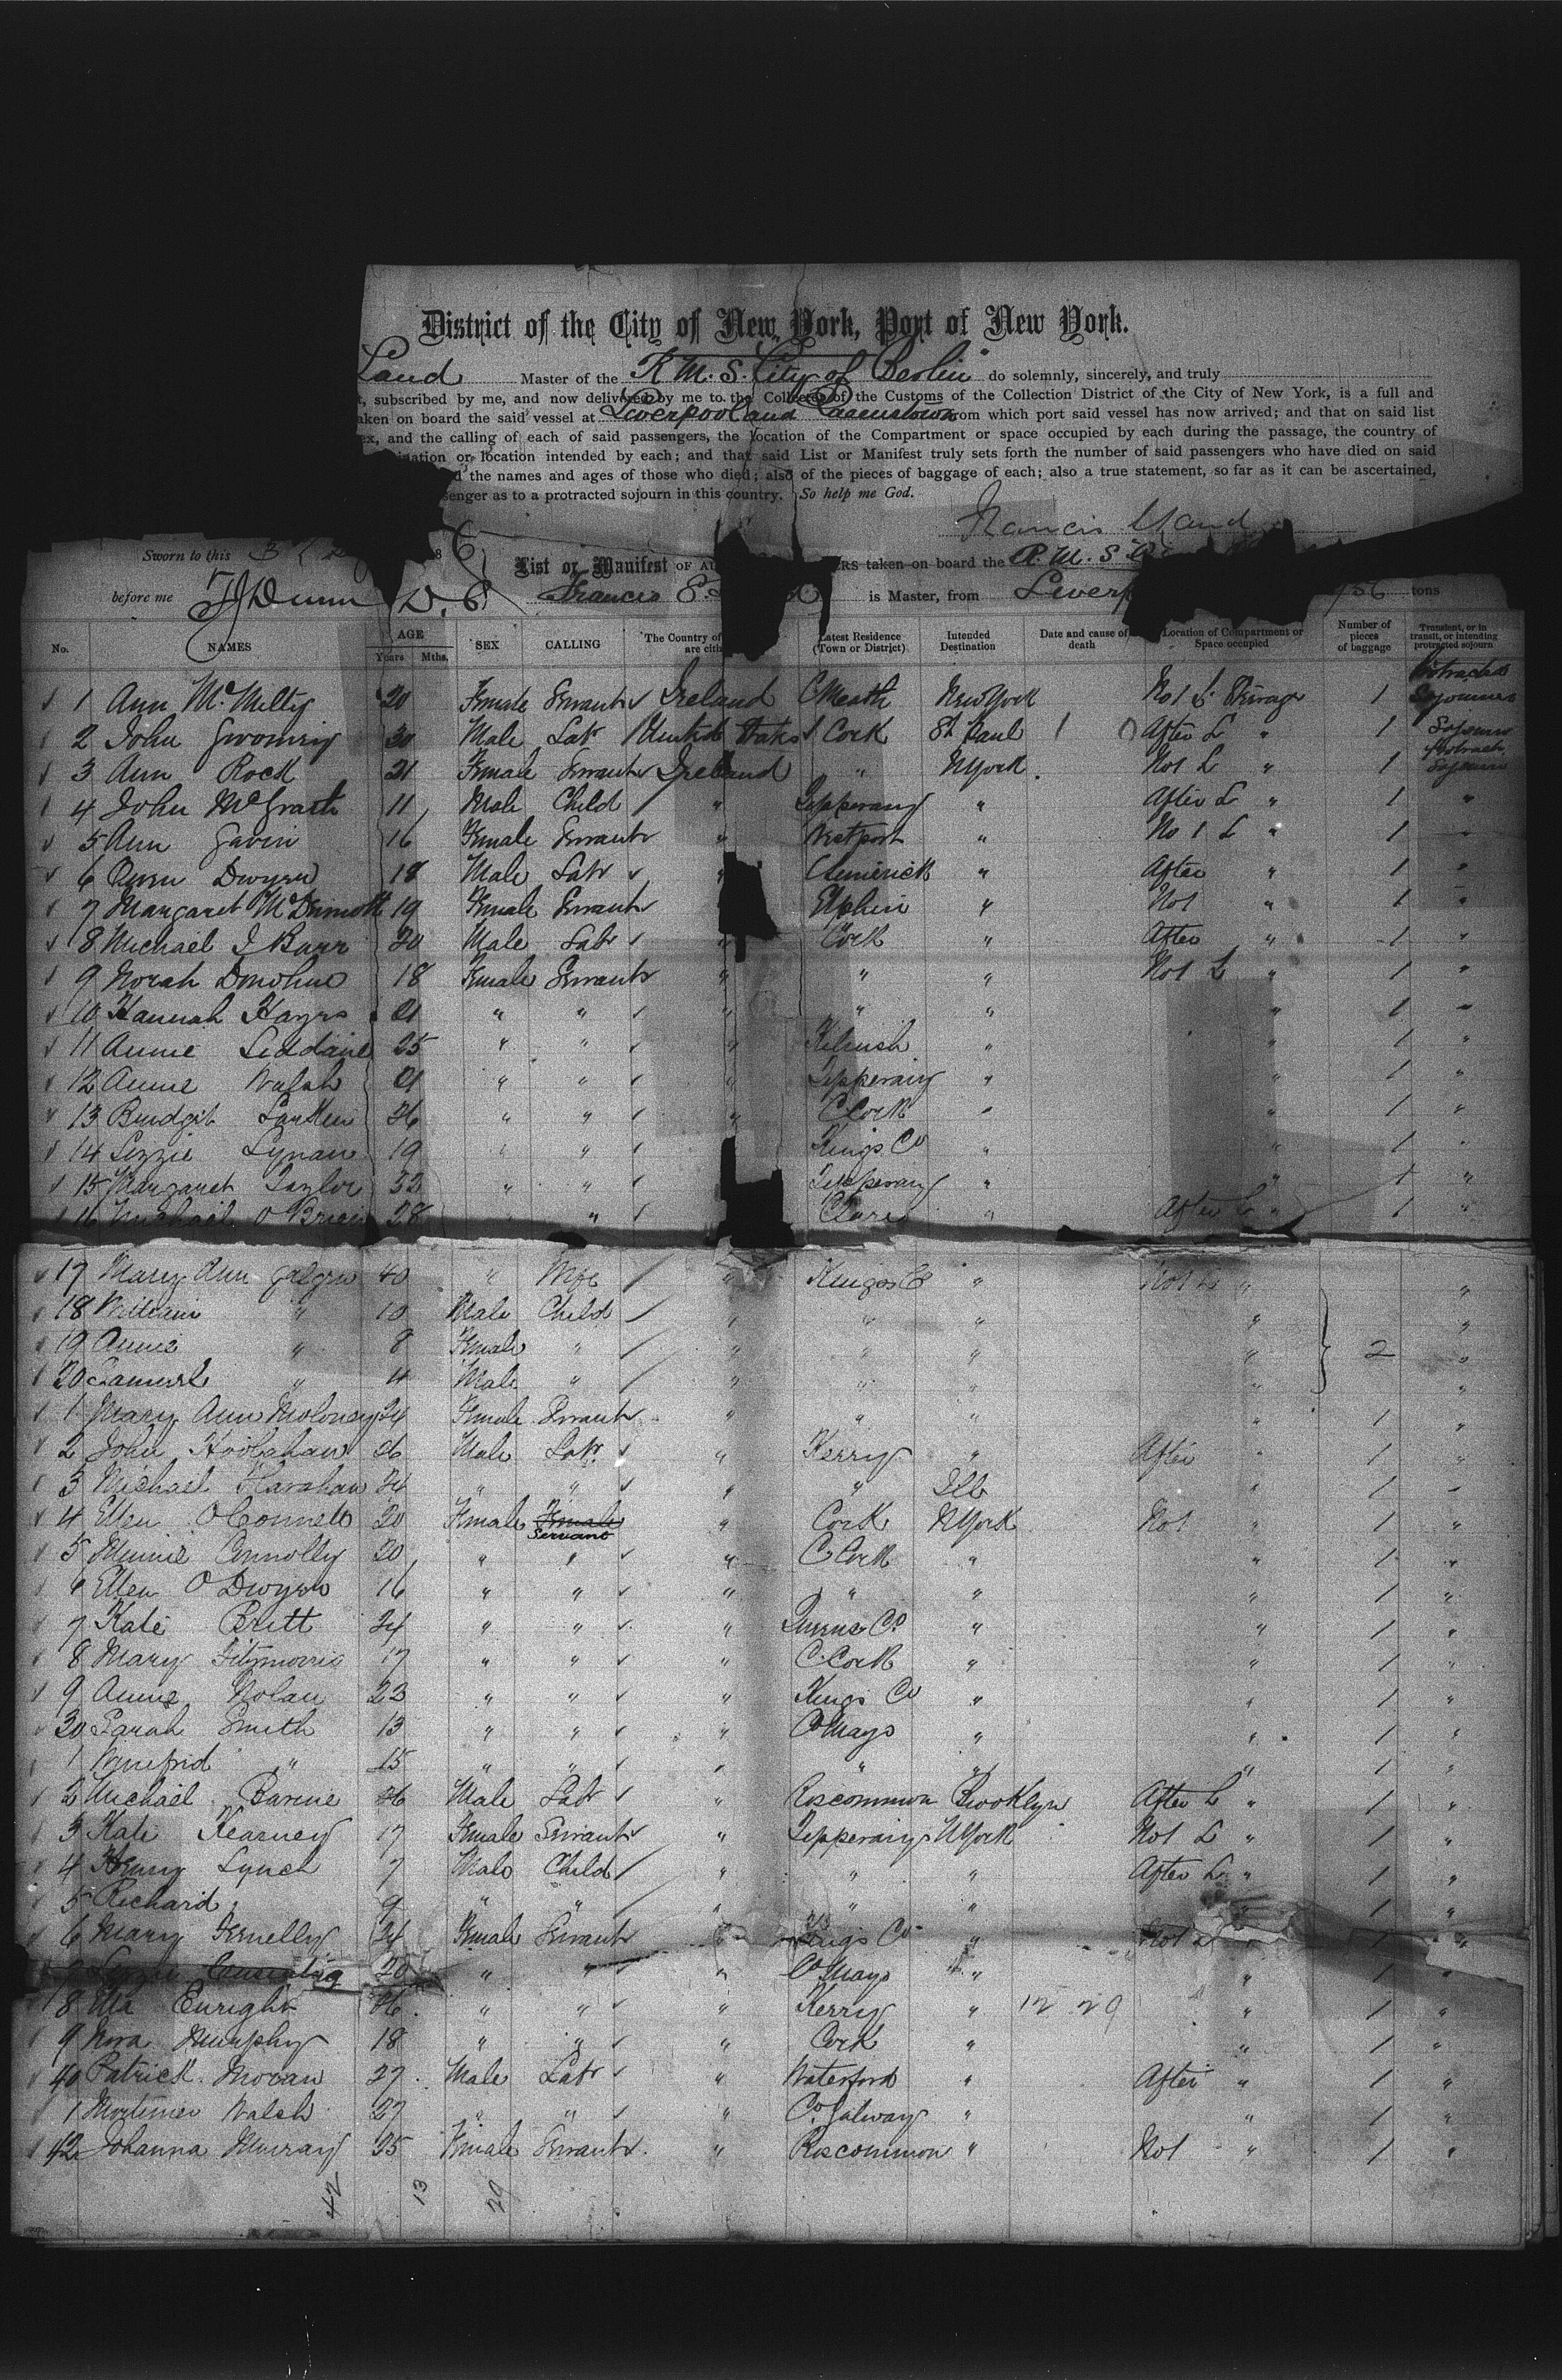 District of the City of New York, Port of New York.
Land Master of the R.M.S. "City of Berlin" do solemnly, sincerely, and truly
, subscribed by me, and now delivered by me to the Collector of the Customs of the Collection District of the City of New York, is a full and
taken on board the said vessel at Liverpool and Queenstown from which port said vessel has now arrived; and that on said list
ex, and the calling of each of said passengers, the location of the Compartment or space occupied by each during the passage, the country of
ination or location intended by each; and that said List or Manifest truly sets forth the number of said passengers who have died on said
d the names and ages of those who died; also of the pieces of baggage of each; also a true statement, so far as it can be ascertained,
senger as to a protracted sojourn in this country. So help me God.
Francis Land
Sworn to this 8
List or Manifest OF ERS taken on board the R.M.S.
before me Dunn D.C. Francis is Master, from Liverp tons
No. NAMES AGE Years Mths. SEX CALLING The Country of are citi Latest Residence (Town or District) Intended Destination Date and cause of death Location of Compartment or Space occupied Number of pieces of baggage Transient, or in transit, or intending protracted sojourn
1 Ann McNilty 20 Female Servant Ireland C Meath New York No 1 L Steerage 1 Protracted Sojourner
2 John 30 Male Labr United States Cork St Paul After L " 1 Sojourn
3 Ann Rock 21 Female Servant Ireland " N York No 1 L " 1 Protract Sojourn
4 John McGrath 11 Male Child " Tipperary " After L " 1 "
5 Ann Gavin 16 Female Servant " Westport " No 1 L " 1 "
6 Owen Dwyer 18 Male Labr " Limerick " After " 1 "
7 Margaret McDermott 19 Female Servant Elphin " No 1 " 1 "
8 Michael J Barr 20 Male Labr " Cork " After " 1 "
9 Norah Donohue 18 Female Servant " " " No 1 L " 1 "
10 Hannah Hayes 21 " " " " " " 1 "
11 Annie Liddane 25 " " " Kilrush " " 1 "
12 Annie Walsh 21 " " " Tipperary " " 1 "
13 Bridget Larkin 26 " " " C Cork " " 1 "
14 Lizzie Lynan 19 " " Kings Co " " 1 "
15 Margaret Taylor 22 " " Tipperary " " 1 "
16 Michael O'Brien 28 " " Clare " After L " 1 "
17 Mary Ann 40 " Wife " Kings Co " No 1 L " "
18 William " 10 Male Child " " " " "
19 Annie " 8 Female " " " " " 2 "
20 Samuel " 4 Male " " " " " "
1 Mary Ann Moloney 24 Female Servant " " " " 1 "
2 John Hoolahan 26 Male Labr " Kerry " After " 1 "
3 Michael 24 " " " " Ills " 1 "
4 Ellen O'Connell 20 Female Female Servant " Cork N York No 1 " 1 "
5 Minnie Connolly 20 " " " C Cork " " 1 "
6 Ellen O'Dwyer 16 " " " " " " 1 "
7 Kate Britt 24 " " " Queens Co " " 1 "
8 Mary Fitzmorris 17 " " " C Cork " " 1 "
9 Annie Nolan 23 " " " Kings Co " " 1 "
30 Sarah Smith 13 " " " Co Mayo " " 1 "
1 Winefrid " 15 " " " " " " 1 "
2 Michael 26 Male Labr " Roscommon Brooklyn After L " 1 "
3 Kate Kearney 17 Female Servant " Tipperary N York No 1 L " 1 "
4 Henry Lynch 7 Male Child " " " After L " 1 "
5 Richard 9 " " " " " " 1 "
6 Mary 24 Female Servant " Kings Co " No 1 L " 1 "
Lizzie 20 " " " Co Mayo " " 1 "
8 Enright 26 " " " Kerry " 12 29 " 1 "
9 Nora Murphy 18 " " " Cork " " 1 "
40 Patrick Moran 27 Male Labr " Waterford " After " 1 "
1 Mortimer Walsh 27 " " " Co Galway " " 1 "
42 Johanna Murray 25 Female Servant " Roscommon " No 1 " 1 "
42 13 29